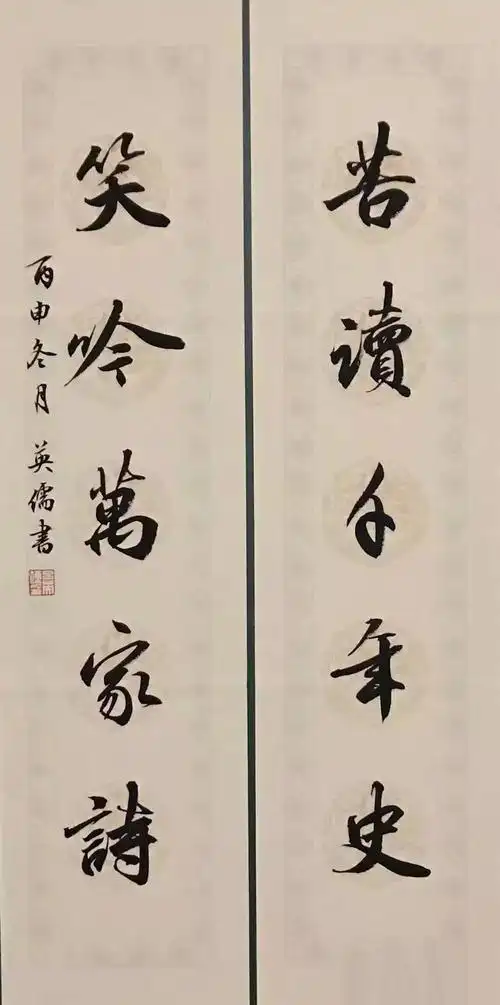 苦讀千年史
笑吟萬家詩
丙申冬月 英儒書